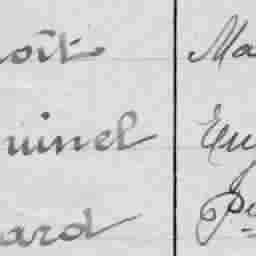 oît Ma
uinel Eu
ard Pi